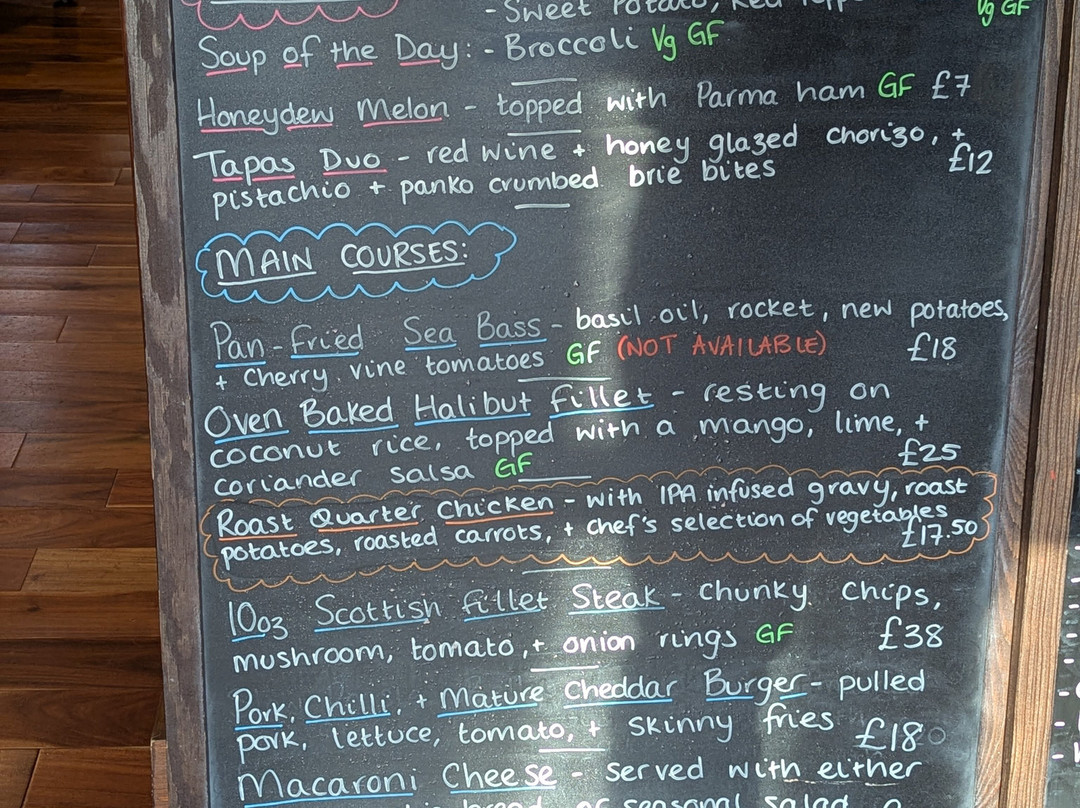 - Sweet Potato, Red
Vg GF
Soup of the Day: - Broccoli Vg GF
Honeydew Melon - topped with Parma ham GF £7
Tapas Duo - red wine + honey glazed chorizo, +
pistachio + panko crumbed brie bites £12
MAIN COURSES:
Pan-Fried Sea Bass - basil oil, rocket, new potatoes,
+ Cherry vine tomatoes GF (NOT AVAILABLE) £18
Oven Baked Halibut fillet - resting on
coconut rice, topped with a mango, lime, +
coriander salsa GF £25
Roast Quarter Chicken - with IPA infused gravy, roast
potatoes, roasted carrots, + chef's selection of vegetables
£17.50
10oz Scottish fillet Steak - chunky chips,
mushroom, tomato, + onion rings GF £38
Pork, Chilli, + Mature Cheddar Burger - pulled
pork, lettuce, tomato, + skinny fries £18
Macaroni Cheese - served with either
bread or seasonal salad